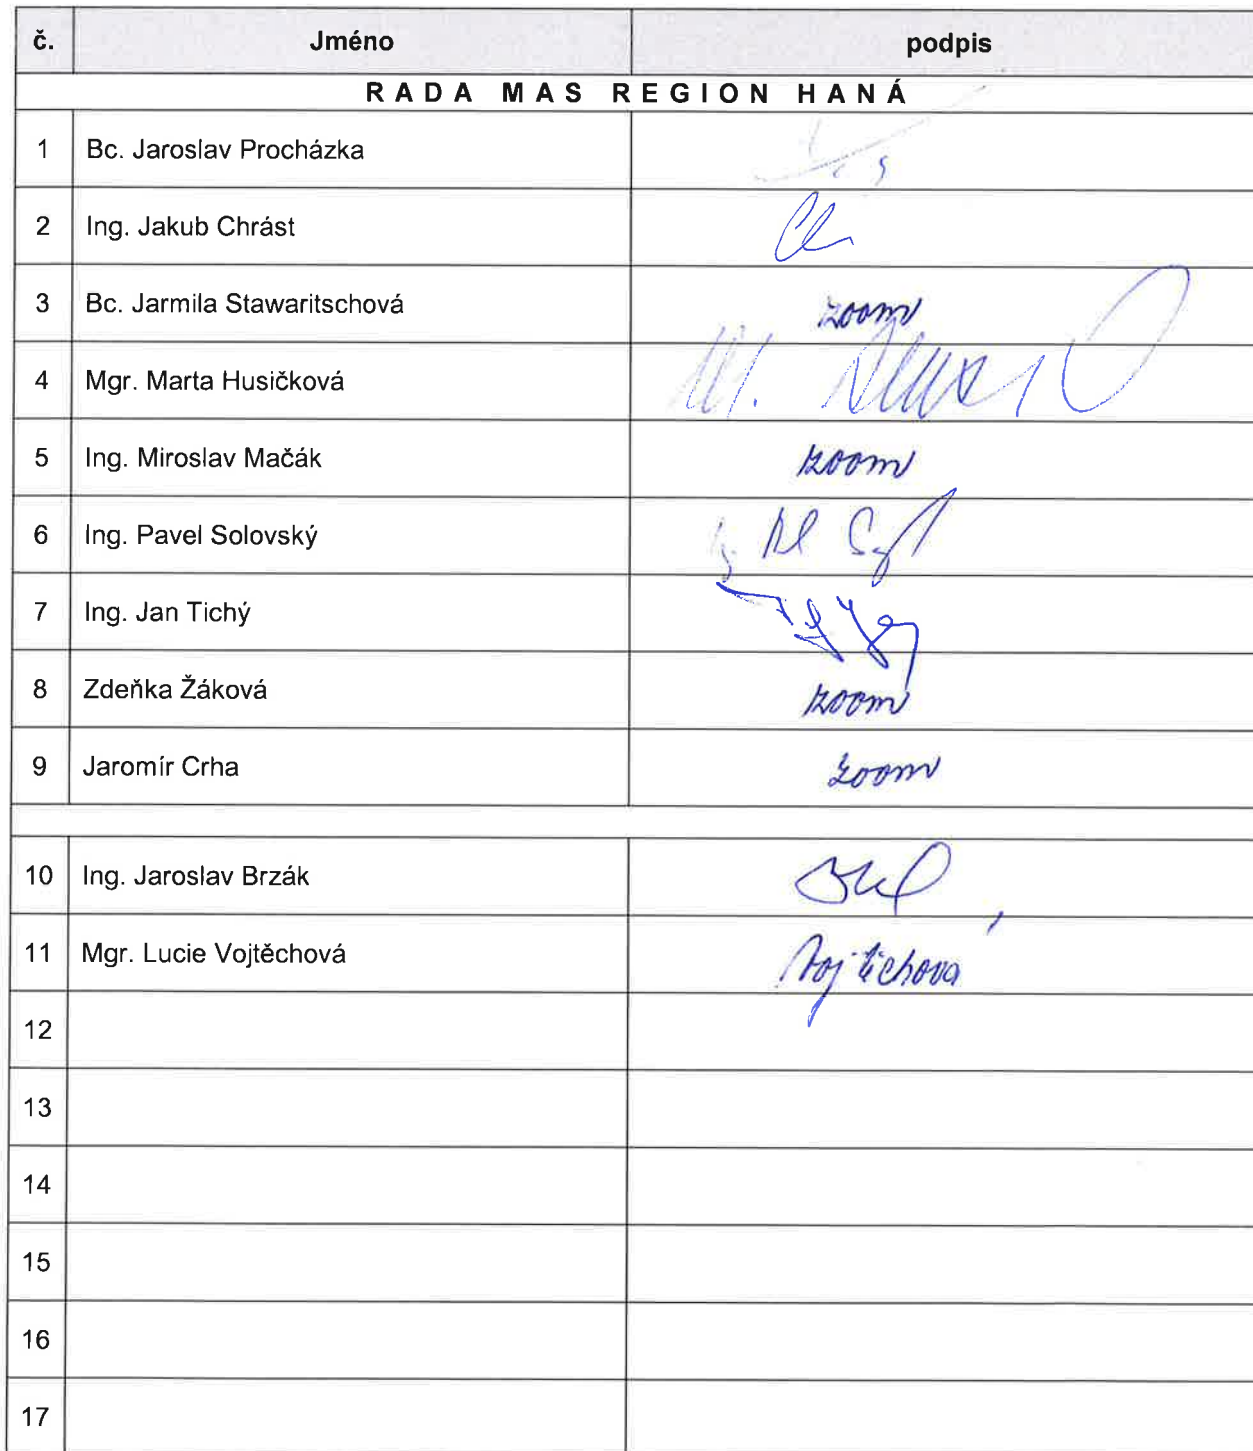 č. Jméno podpis
RADA MAS REGION HANÁ
1 Bc. Jaroslav Procházka
2 Ing. Jakub Chrást
3 Bc. Jarmila Stawaritschová zoom
4 Mgr. Marta Husičková
5 Ing. Miroslav Mačák zoom
6 Ing. Pavel Solovský
7 Ing. Jan Tichý
8 Zdeňka Žáková zoom
9 Jaromír Crha zoom
10 Ing. Jaroslav Brzák
11 Mgr. Lucie Vojtěchová Vojtěchová
12
13
14
15
16
17